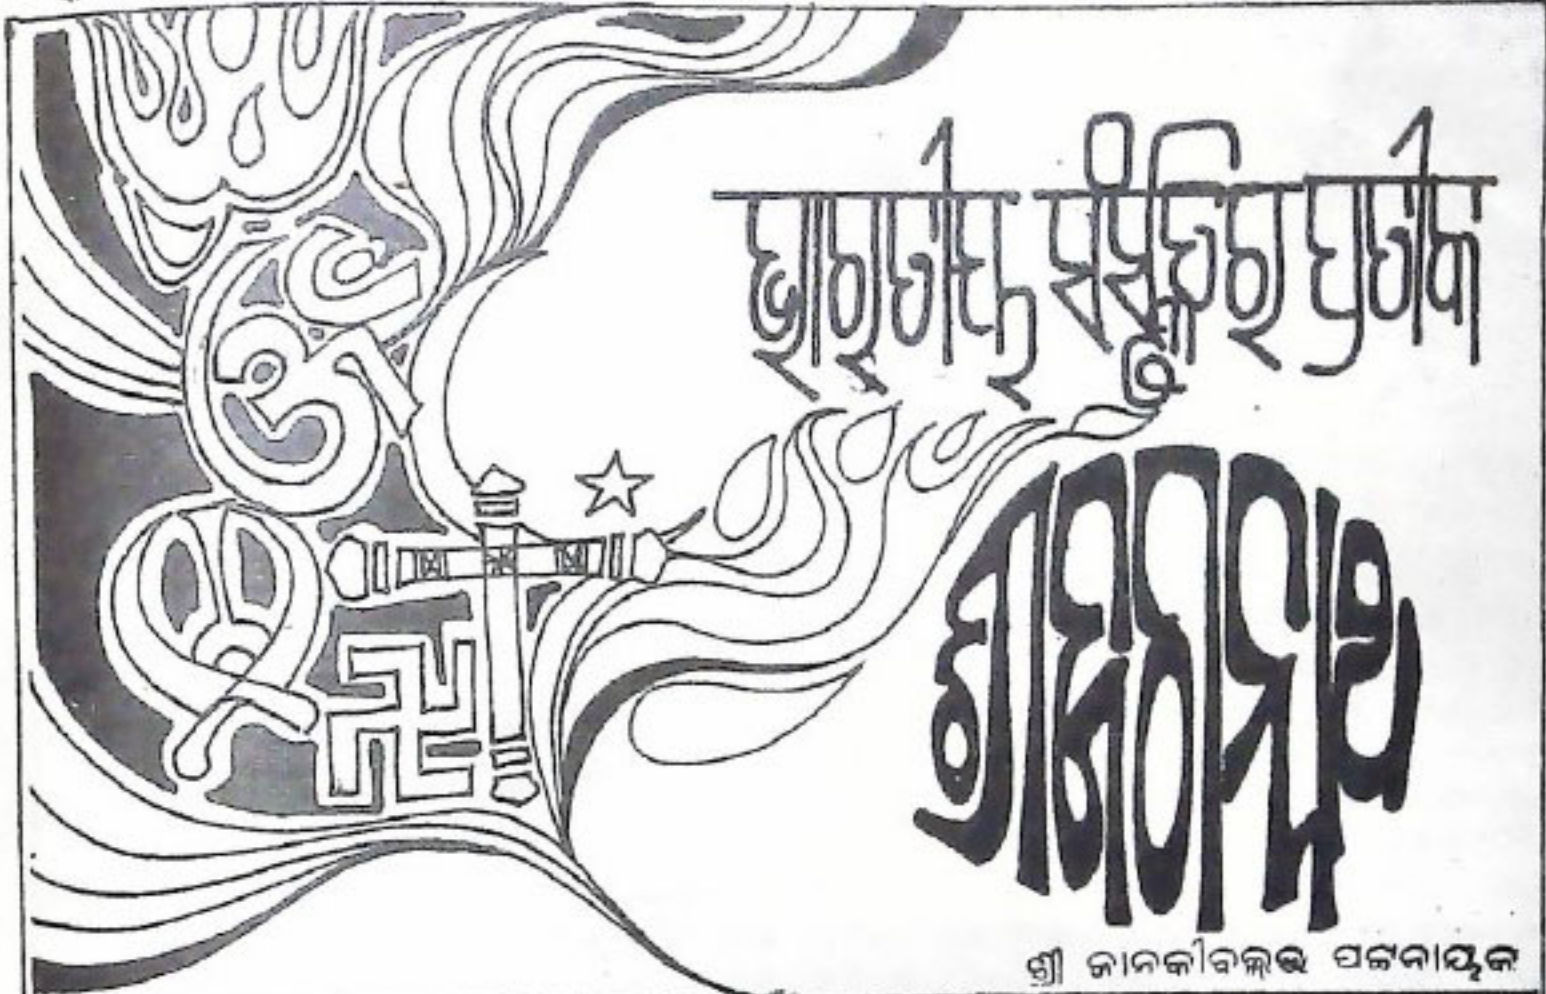 ଭାରତୀୟ ସଂସ୍କୃତିର ପ୍ରତୀକ
ଶ୍ରୀଜଗନ୍ନାଥ
ଶ୍ରୀ ଜାନକୀବଲ୍ଲଭ ପଟ୍ଟନାୟକ